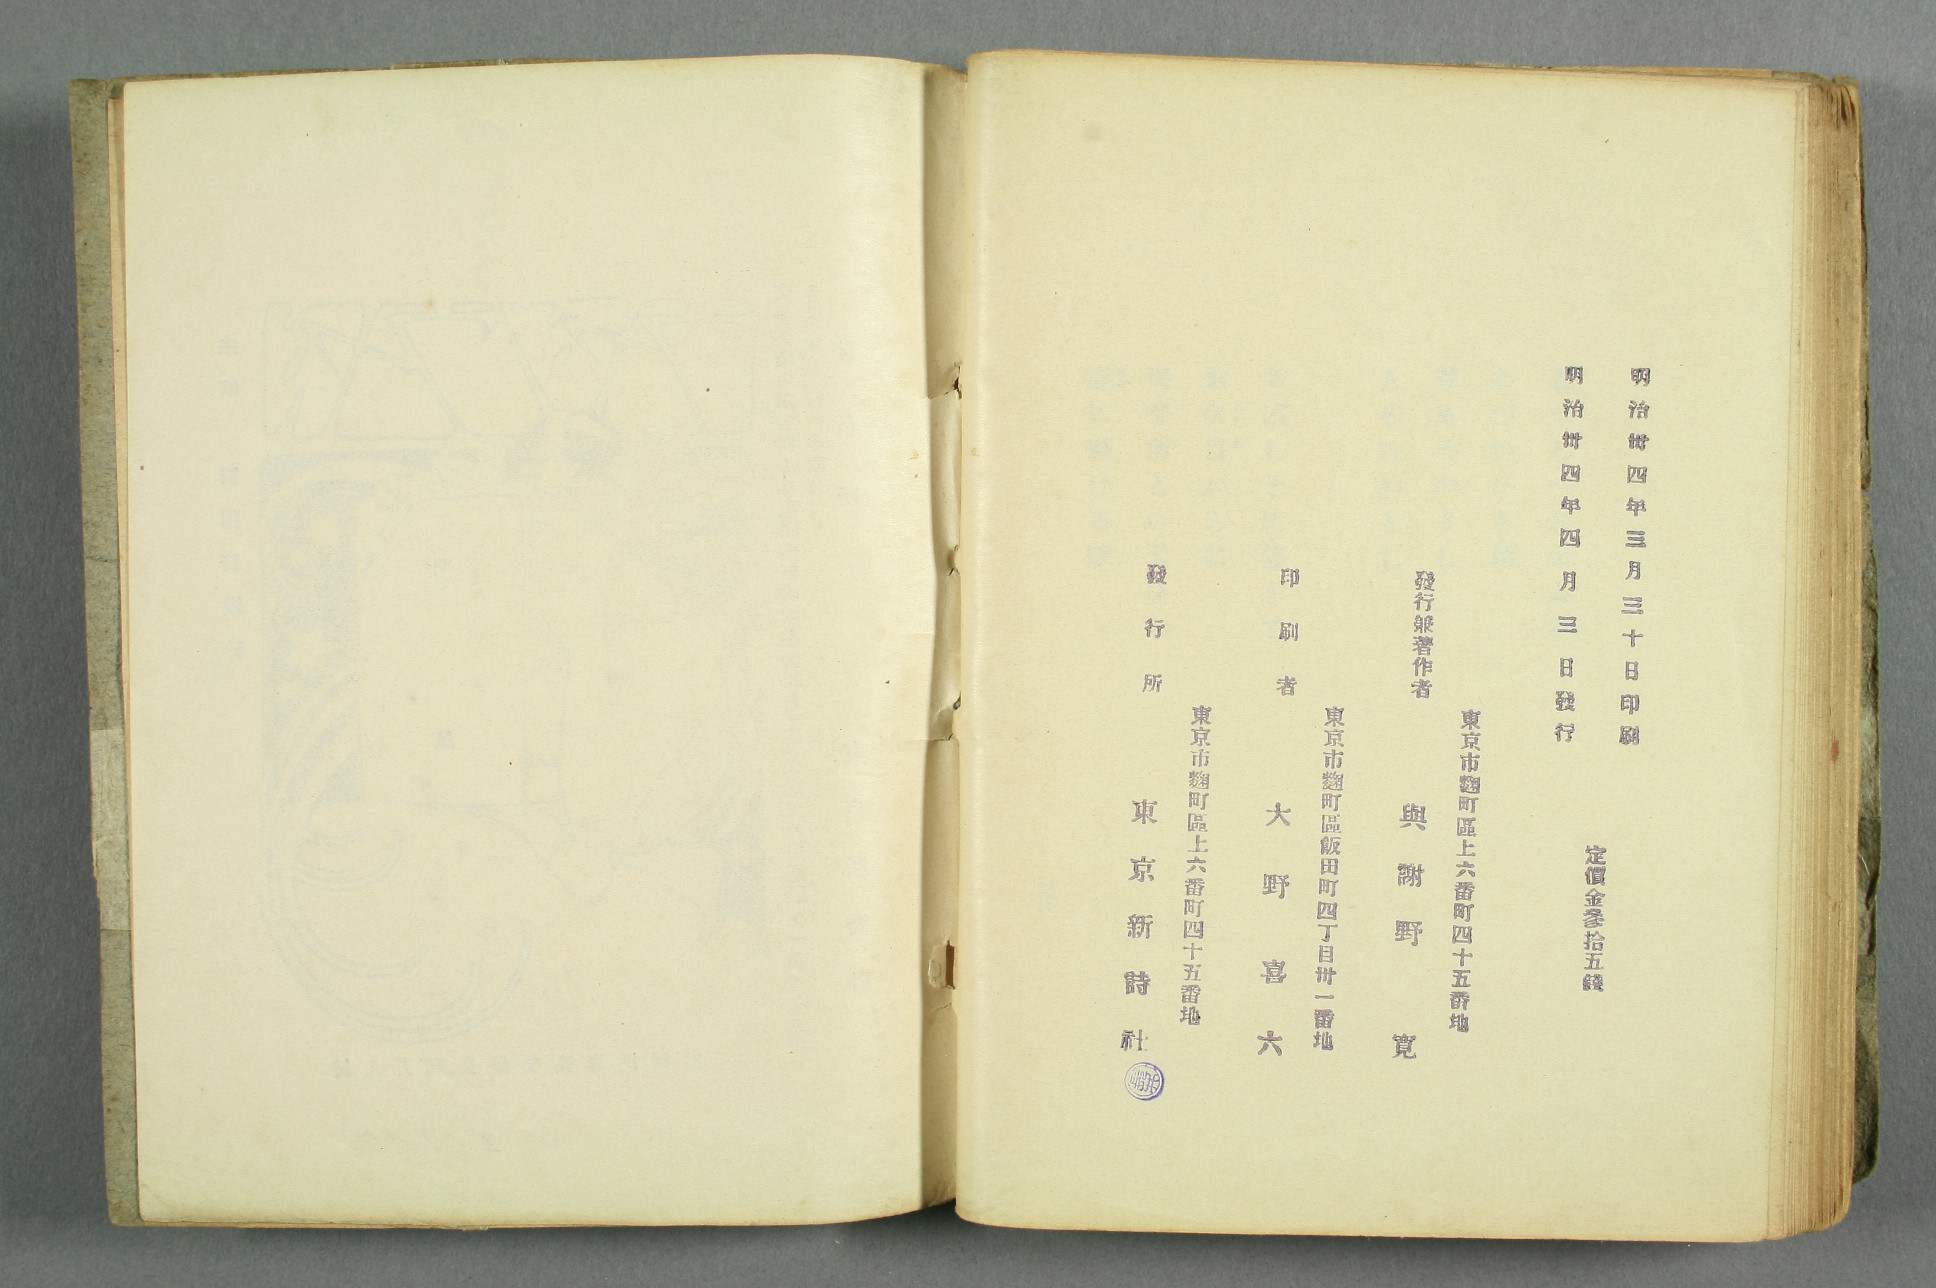 明治卅四年三月三十日印刷
明治卅四年四月三日發行
定價金參拾五錢
東京市麴町區上六番町四十五番地
發行兼著作者
與謝野寬
東京市麴町區飯田町四丁目卅一番地
印刷者
大野喜六
東京市麴町區上六番町四十五番地
發行所
東京新詩社